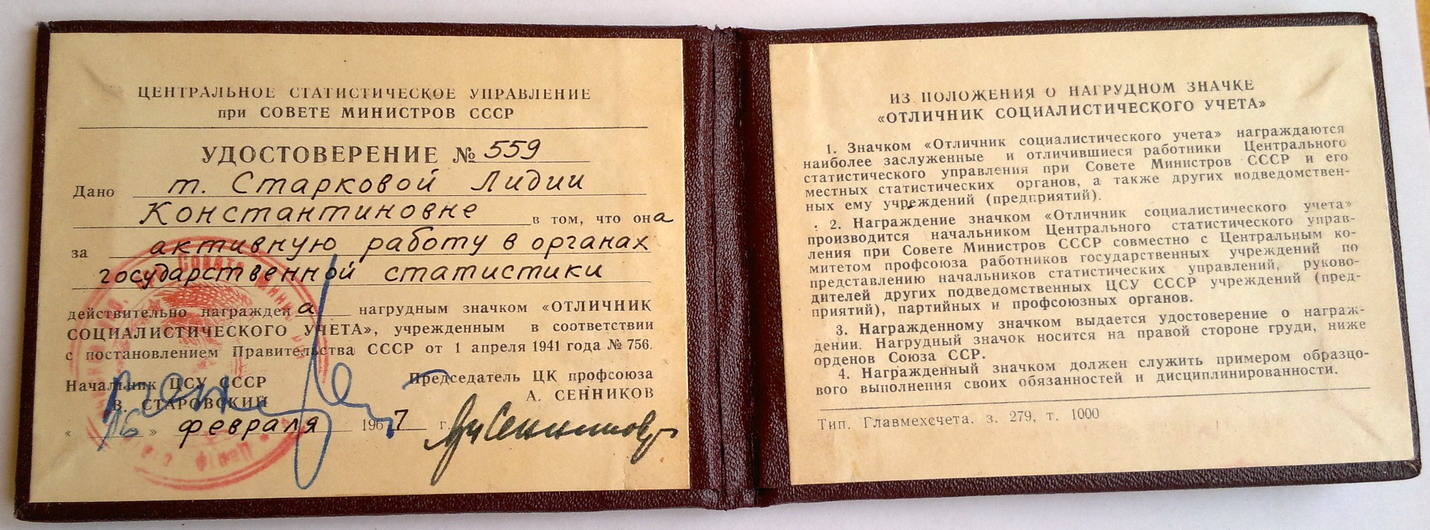 ЦЕНТРАЛЬНОЕ СТАТИСТИЧЕСКОЕ УПРАВЛЕНИЕ
при СОВЕТЕ МИНИСТРОВ СССР
УДОСТОВЕРЕНИЕ № 559
Дано т. Старковой Лидии
Константиновне в том, что она
за активную работу в органах
государственной статистики
действительно награждена нагрудным значком «ОТЛИЧНИК
СОЦИАЛИСТИЧЕСКОГО УЧЕТА», учрежденным в соответствии
с постановлением Правительства СССР от 1 апреля 1941 года № 756.
Начальник ЦСУ СССР
В. СТАРОВСКИЙ
Председатель ЦК профсоюза
А. СЕННИКОВ
«16» февраля 1967 г.
ИЗ ПОЛОЖЕНИЯ О НАГРУДНОМ ЗНАЧКЕ
«ОТЛИЧНИК СОЦИАЛИСТИЧЕСКОГО УЧЕТА»
1. Значком «Отличник социалистического учета» награждаются
наиболее заслуженные и отличившиеся работники Центрального
статистического управления при Совете Министров СССР и его
местных статистических органов, а также других подведомствен-
ных ему учреждений (предприятий).
2. Награждение значком «Отличник социалистического учета»
производится начальником Центрального статистического управ-
ления при Совете Министров СССР совместно с Центральным ко-
митетом профсоюза работников государственных учреждений по
представлению начальников статистических управлений, руково-
дителей других подведомственных ЦСУ СССР учреждений (пред-
приятий), партийных и профсоюзных органов.
3. Награжденному значком выдается удостоверение о награж-
дении. Нагрудный значок носится на правой стороне груди, ниже
орденов Союза ССР.
4. Награжденный значком должен служить примером образцо-
вого выполнения своих обязанностей и дисциплинированности.
Тип. Главмехсчета. з. 279, т. 1000